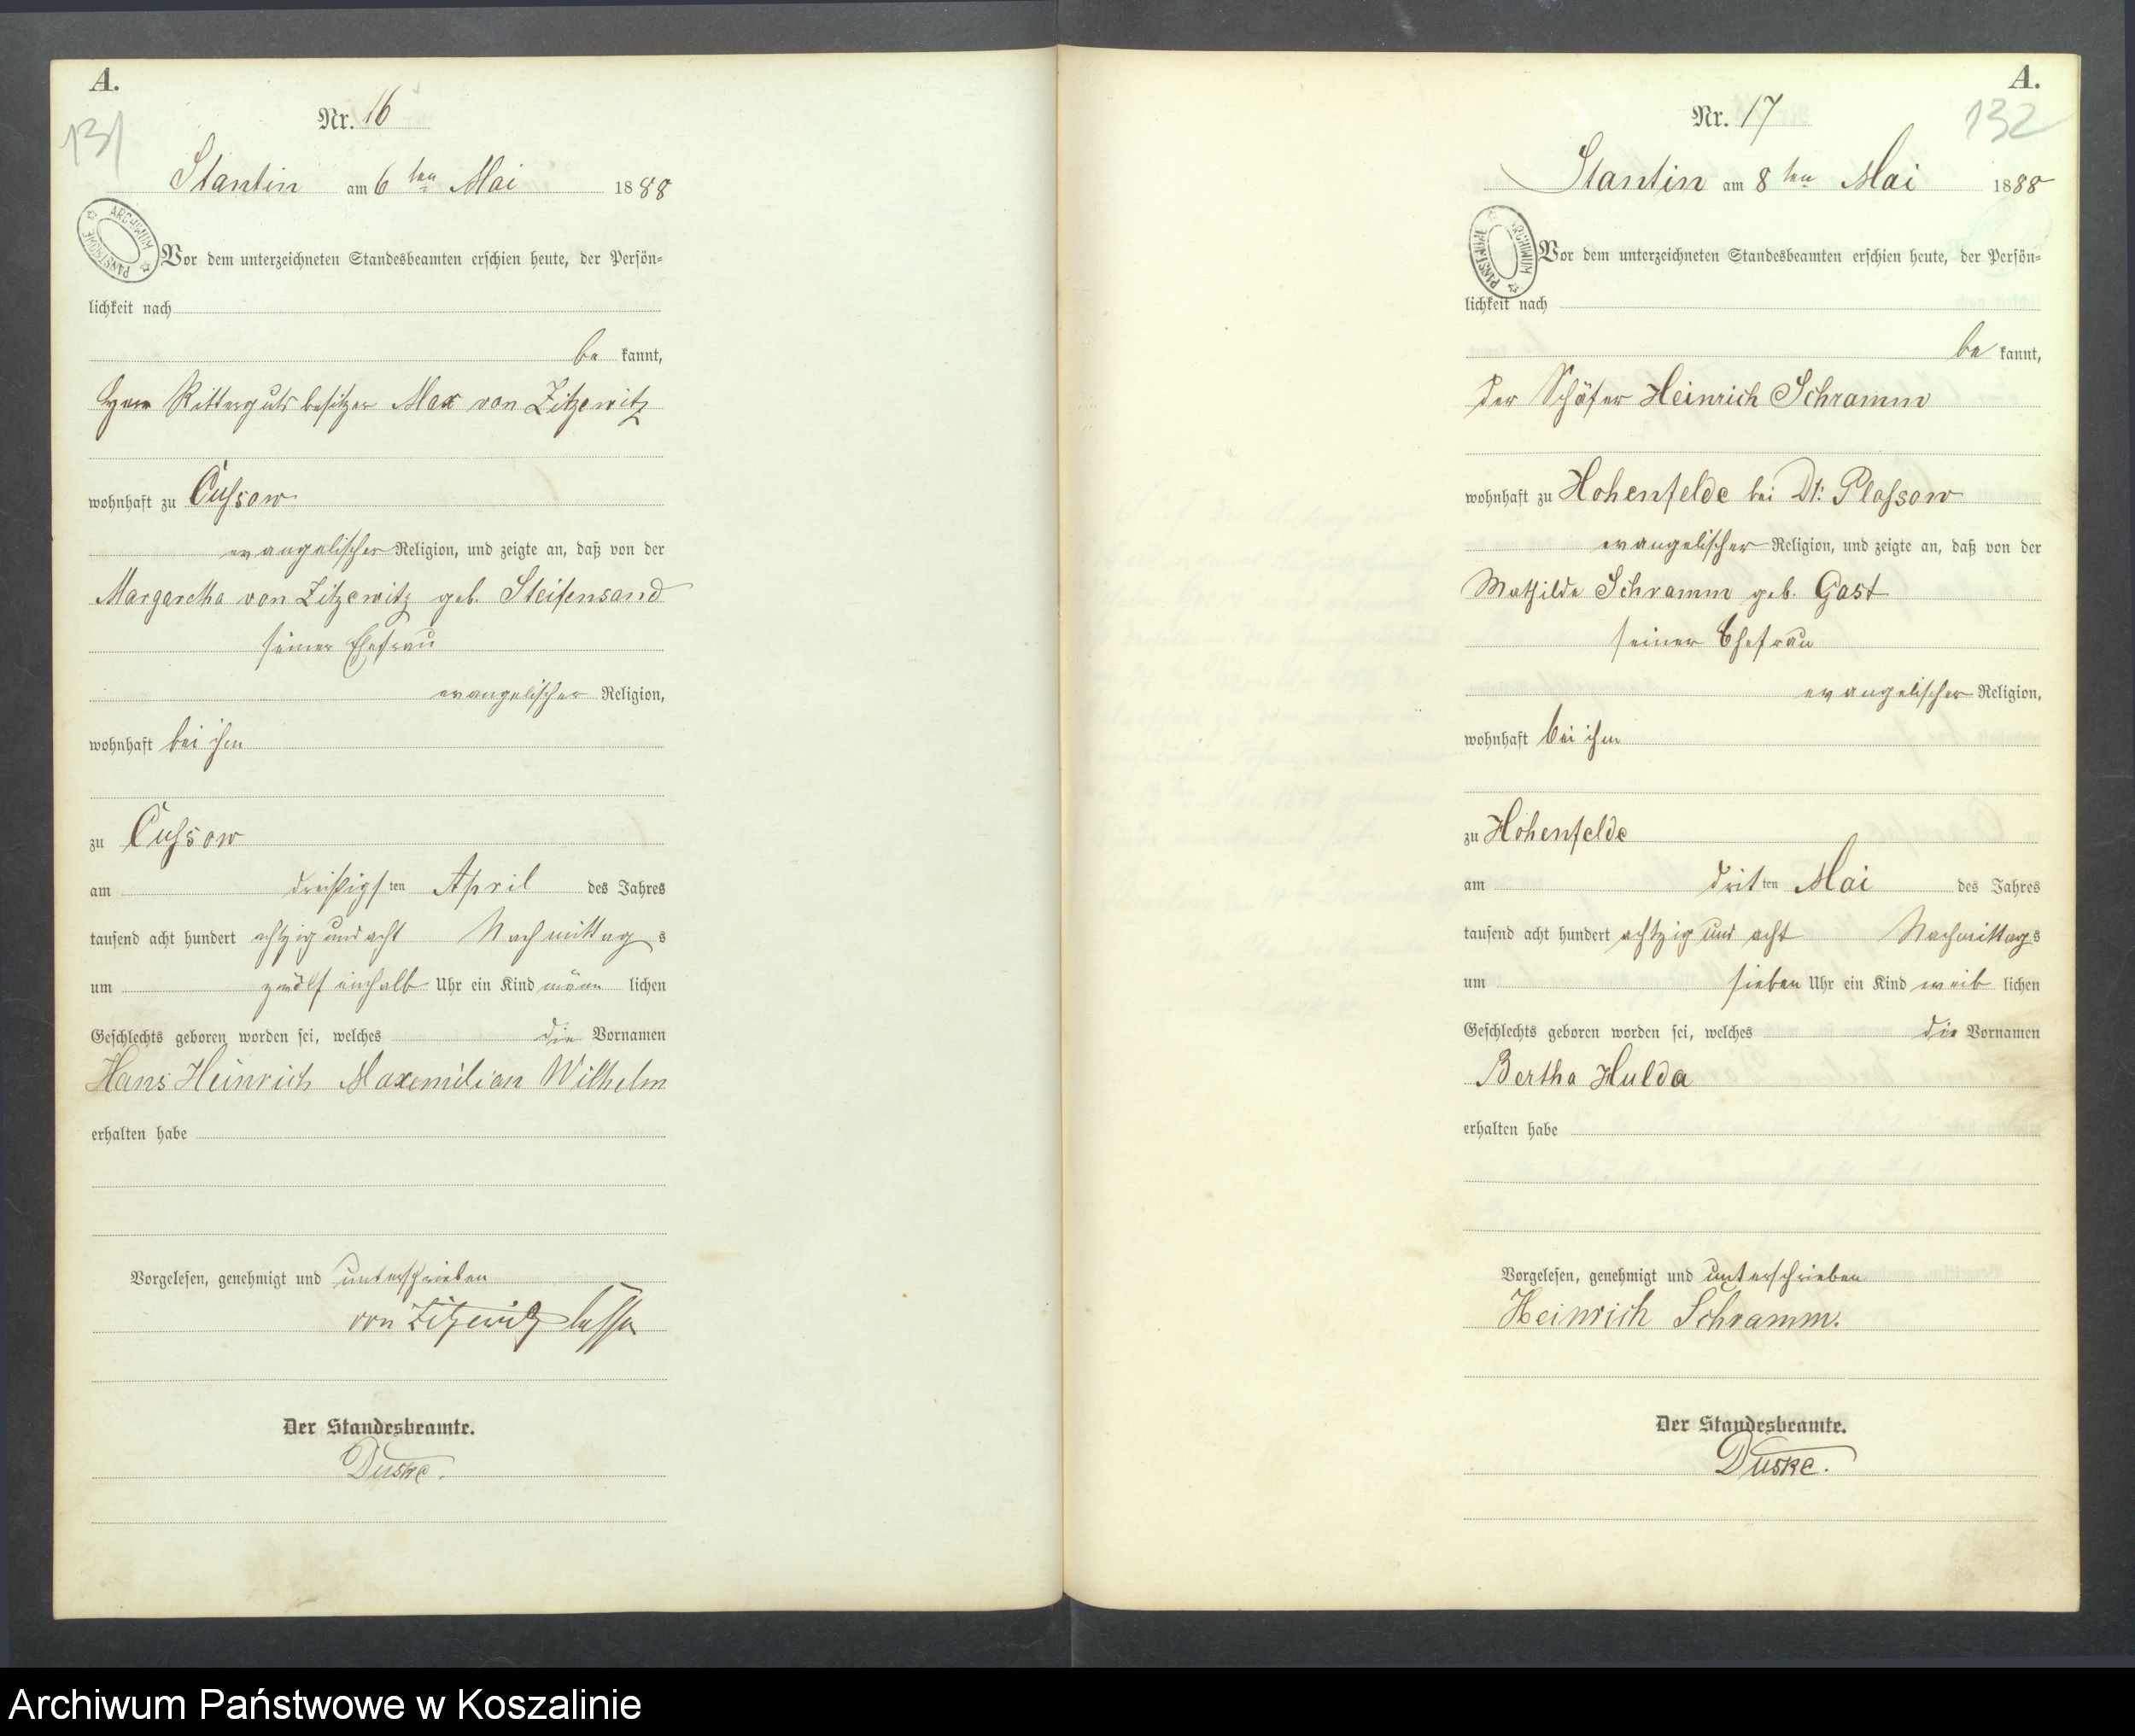 A.
131
Nr. 16
Stantin am 6 ten Mai 1888
ARCHIWUM PAŃSTWOWE
Vor dem unterzeichneten Standesbeamten erschien heute, der Persön-
lichkeit nach
be kannt,
Herr Rittergutsbesitzer Max von Zitzewitz
wohnhaft zu Cussow
evangelischer Religion, und zeigte an, daß von der
Margaretha von Zitzewitz geb. Steifensand
seiner Ehefrau
evangelischer Religion,
wohnhaft bei ihm
zu Cussow
am dreißigs ten April des Jahres
tausend acht hundert achtzig und acht Nachmittag s
um zwölf einhalb Uhr ein Kind männ lichen
Geschlechts geboren worden sei, welches die Vornamen
Hans Heinrich Maxemilian Wilhelm
erhalten habe
Vorgelesen, genehmigt und unterschrieben
von Zitzewitz
Der Standesbeamte.
Duske.
A.
132
Nr. 17
Stantin am 8 ten Mai 1888
ARCHIWUM PAŃSTWOWE
Vor dem unterzeichneten Standesbeamten erschien heute, der Persön-
lichkeit nach
be kannt,
Der Schäfer Heinrich Schramm
wohnhaft zu Hohenfelde bei Dt: Plassow
evangelischer Religion, und zeigte an, daß von der
Mathilde Schramm geb. Gast
seiner Ehefrau
evangelischer Religion,
wohnhaft bei ihm
zu Hohenfelde
am drit ten Mai des Jahres
tausend acht hundert achtzig und acht Nachmittags
um sieben Uhr ein Kind weib lichen
Geschlechts geboren worden sei, welches die Vornamen
Bertha Hulda
erhalten habe
Vorgelesen, genehmigt und unterschrieben
Heinrich Schramm.
Der Standesbeamte.
Duske.
Archiwum Państwowe w Koszalinie